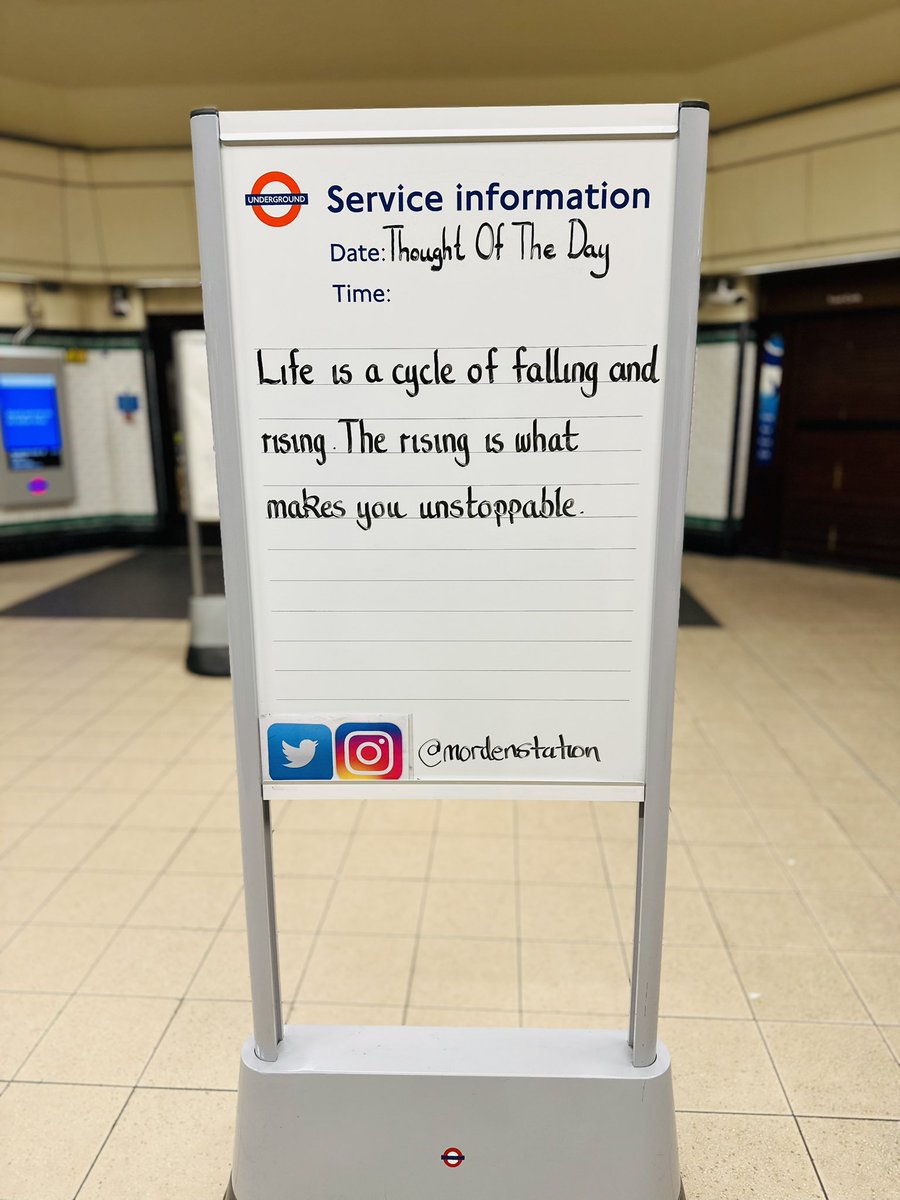 UNDERGROUND
Service information
Date: Thought Of The Day
Time:
Life is a cycle of falling and
rising. The rising is what
makes you unstoppable.
@mordenstation